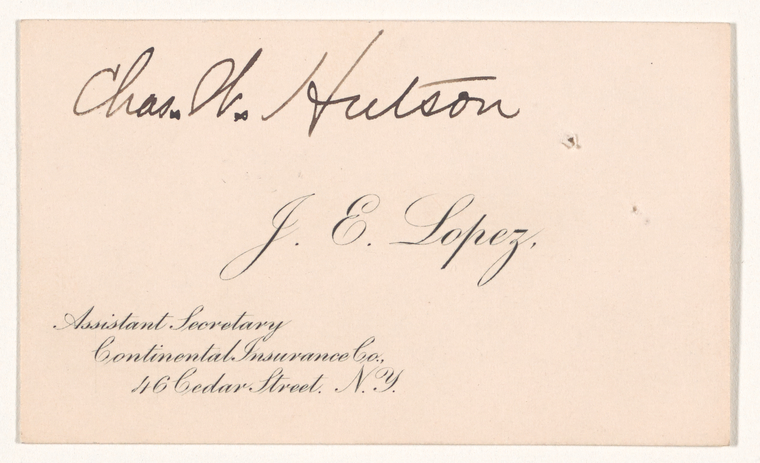 Chas. W. Hutson
J. E. Lopez,
Assistant Secretary
Continental Insurance Co.,
46 Cedar Street. N.Y.